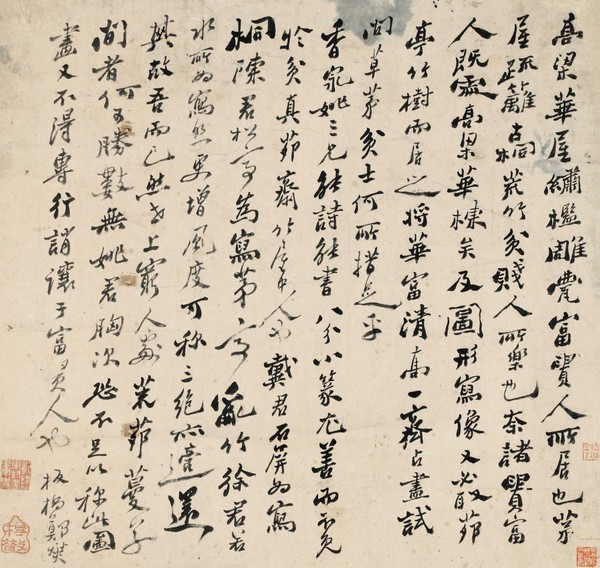 高梁華屋繡檻雕甍富貴人所居也茅
屋疏籬古桐荒竹貧賤人所樂也奈諸貴富
人既處高梁華棟矣及圖形寫像又必取茆
亭竹樹而居之將華富清高一齊占盡試
問草茅貧士何所措足乎
香家姚三兄能詩能書八分小篆尤善而不免
於貧真茆齋竹屋中人也戴君石屏為寫
桐陳君松亭為寫茅亭亂竹徐君若
水所為寫照更增風度可稱三絕亦適還
其故吾而已然世上窮人處荒茆蔓草
間者何可勝數無姚君胸次恐不足以稱此圖
畫又不得專行誚讓于富貴人也 板橋鄭燮